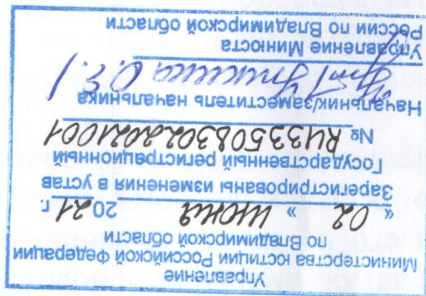 Управление
Министерства юстиции Российской Федерации
по Владимирской области
« 02 » июня 2021 г.
Зарегистрированы изменения в устав
Государственный регистрационный
№ RU335083022021001
Начальник/заместитель начальника
Управление Минюста
России по Владимирской области